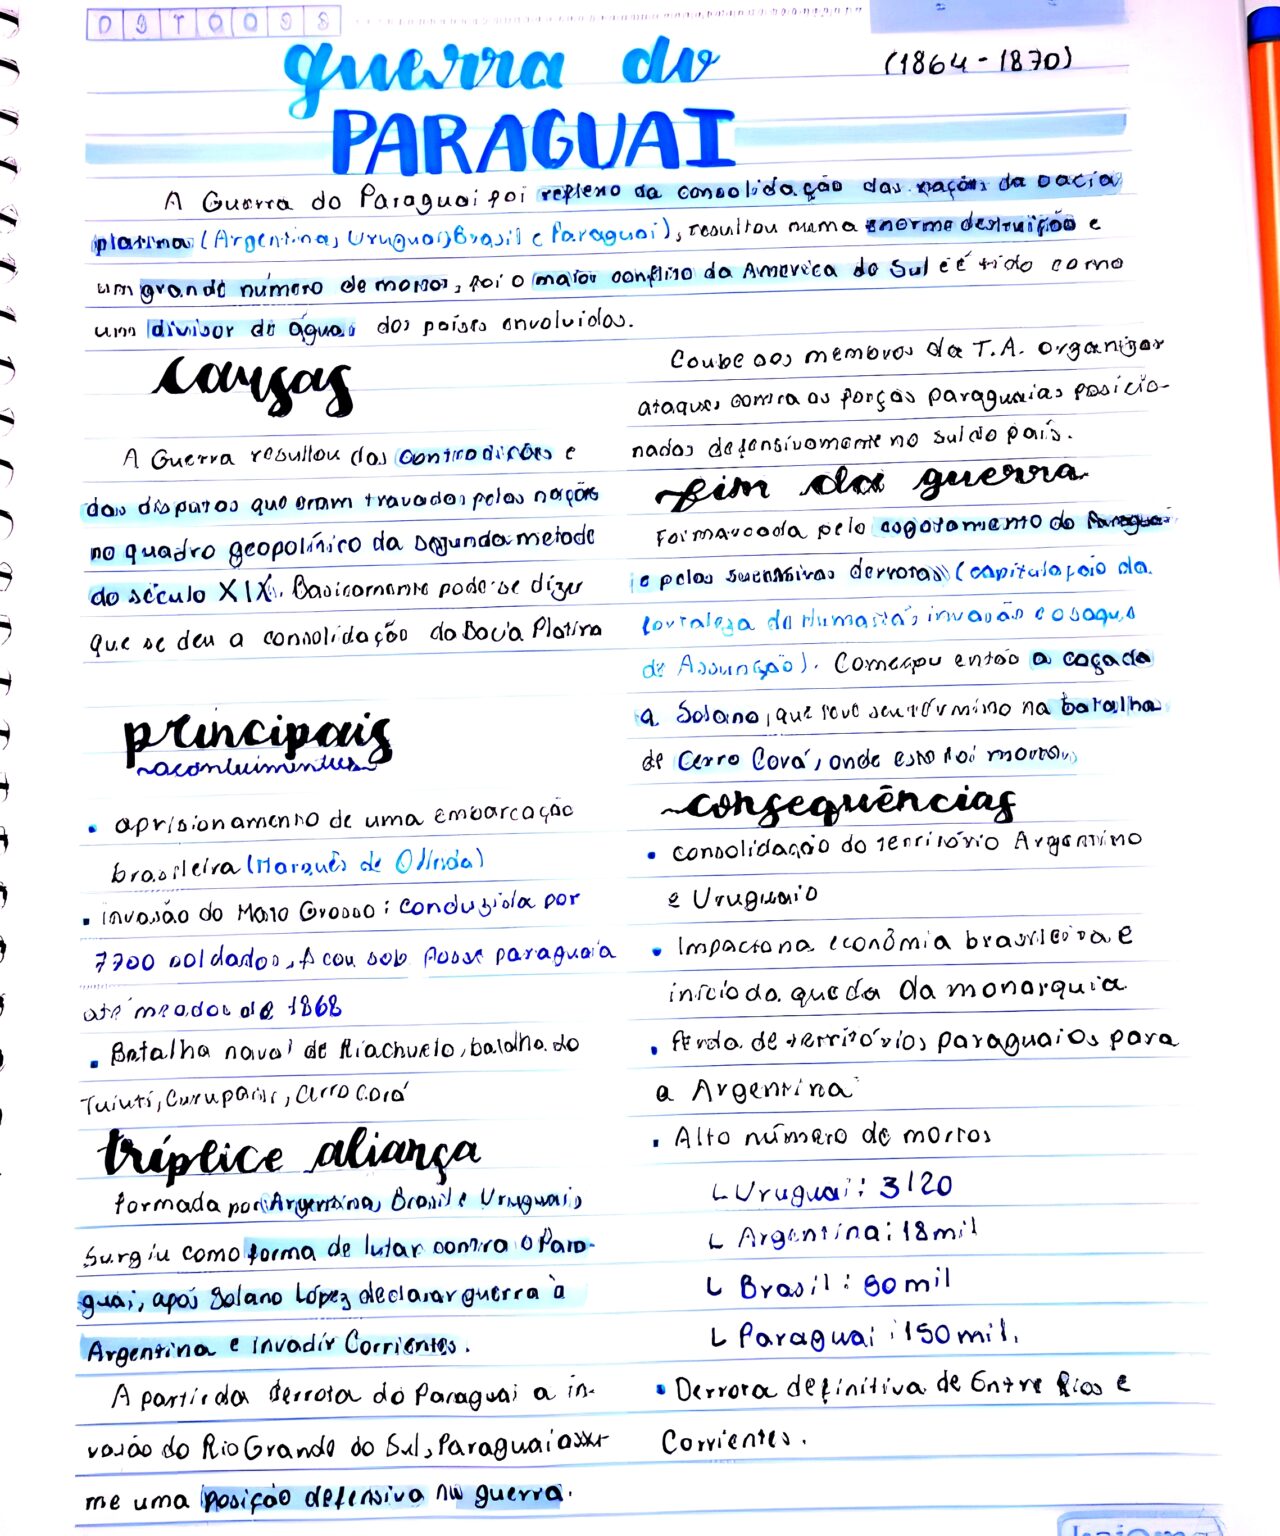 D S T Q Q S S
guerra do
(1864-1870)
PARAGUAI
A Guerra do Paraguai foi reflexo da consolidação das nações da bacia
platina (Argentina, Uruguai, Brasil e Paraguai), resultou numa enorme destruição e
um grande número de mortos, foi o maior conflito da America do Sul e é tido como
um divisor de águas dos países envolvidos.
causas
A Guerra resultou das contradições e
das disputas que eram travadas pelas nações
no quadro geopolítico da segunda metade
do século XIX. Basicamente pode-se dizer
que se deu a consolidação da Bacia Platina
principais
~acontecimentos~
• aprisionamento de uma embarcação
brasileira (Marquês de Olinda)
• invasão do Mato Grosso: conduzida por
7700 soldados, ficou sob posse paraguaia
até meados de 1868
• Batalha naval de Riachuelo, batalha do
Tuiuti, Curupaiti, Cerro Corá
tríplice aliança
formada por Argentina, Brasil e Uruguai,
surgiu como forma de lutar contra o Para-
guai, após Solano López declarar guerra à
Argentina e invadir Corrientes.
A partir da derrota do Paraguai a in-
vasão do Rio Grande do Sul, Paraguai assu-
me uma posição defensiva na guerra.
Coube aos membros da T.A. organizar
ataques contra as forças paraguaias posicio-
nadas defensivamente no sul do país.
~fim da guerra
Foi marcada pelo esgotamento do Paraguai
e pelas sucessivas derrotas (capitulação da
fortaleza de Humaitá, invasão e saque
de Assunção). Começou então a caçada
a Solano, que teve seu término na batalha
de Cerro Corá, onde este foi morto.
~consequências
• consolidação do território Argentino
e Uruguaio
• Impacto na econômia brasileira e
início da queda da monarquia
• Perda de territórios paraguaios para
a Argentina
• Alto número de mortos
↳ Uruguai: 3120
↳ Argentina: 18 mil
↳ Brasil: 50 mil
↳ Paraguai: 150 mil.
• Derrota definitiva de Entre Rios e
Corrientes.